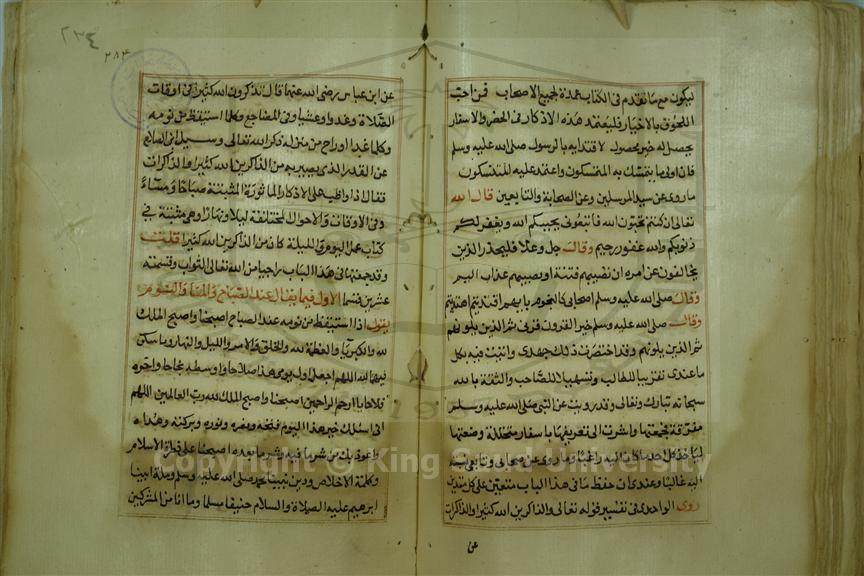 ليكون مع ما تقدم في الكتاب عمدة لجميع الاصحاب فمن احب
اللحوق بالاخيار فليعتمد هذه الاذكار في الحضر والاسفار
يحصل له خير محصول لاقتدايه بالرسول صلى الله عليه وسلم
فان اولى ما يتمسك به المتمسكون واعتمد عليه المتنسكون
ما روى عن سيد المرسلين وعن الصحابة والتابعين قال الله
تعالى ان كنتم تحبون الله فاتبعونى يحببكم الله ويغفر لكم
ذنوبكم والله غفور رحيم وقال جل وعلا فليحذر الذين
يخالفون عن امره ان تصيبهم فتنة او يصيبهم عذاب اليم
وقال صلى الله عليه وسلم اصحابى كالنجوم بايهم اقتديتم اهتديتم
وقال صلى الله عليه وسلم خير القرون قرنى ثم الذين يلونهم
ثم الذين يلونهم وقد اختصرت ذلك جهدى واتيت فيه بكل
ما عندى تقريبا للطالب وتسهيلا للصاحب والثقة بالله
سبحانه تبارك وتعالى وقد رويت عن النبى صلى الله عليه وسلم
مفرقة فجمعتها واشرت الى تعريفها باسفار متخللة وضعتها
لياخذ كل احد ما كان اليه راغبا وما روى عن صحابى وتابعى نسبته
اليه غالبا وعندى ان حفظ ما فى هذا الباب متعين على كل متدين
روى الواحدى فى تفسير قوله تعالى والذاكرين الله كثيرا والذاكرات
عن
٢٣٤
٢٨٤
عن ابن عباس رضى الله عنهما قال يذكرون الله كثيرا فى اوقات
الصلاة وغدوا وعشيا وفى المضاجع وكلما استيقظ من نومه
وكلما غدا او راح من منزله ذكر الله تعالى وسيل ابن الصلاح
عن القدر الذى يصير به من الذاكرين الله كثيرا والذاكرات
فقال اذا واظب على الاذكار الماثورة المثبتة صباحا ومساءً
وفى الاوقات والاحوال المختلفة ليلا ونهارا وهى مثبتة فى
كتاب عمل اليوم والليلة كان من الذاكرين الله كثيرا قلت
وقد جمعتها فى هذا الباب راجيا من الله تعالى الثواب وقسمته
عشرين قسما الاول فيما يقال عند الصباح والمساء والنوم
يقول اذا استيقظ من نومه عند الصباح اصبحنا واصبح الملك
لله والكبريا والعظمة لله والخلق والامر والليل والنهار وما سكن
فيهما لله اللهم اجعل اول يومى هذا صلاحا واوسطه نجاحا واخره
فلاحا يا ارحم الراحمين اصبحنا واصبح الملك لله رب العالمين اللهم
انى اسئلك خير هذا اليوم فتحه ونصره ونوره وبركته وهداه
واعوذ بك من شر ما فيه وشر ما بعده اصبحنا على فطرة الاسلام
وكلمة الاخلاص ودين نبينا محمد صلى الله عليه وسلم وملة ابينا
ابرهيم عليه الصلاة والسلام حنيفا مسلما وما انا من المشركين
Copyright © King Saud University